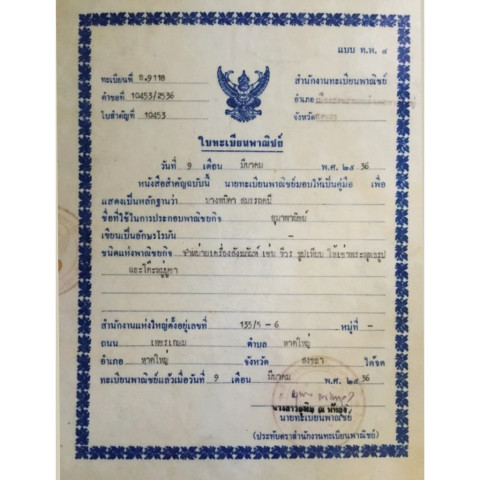 แบบ ท.พ. ๔
ทะเบียนที่ ธ.9118
คำขอที่ 10453/2536
ใบสำคัญที่ 10453
สำนักงานทะเบียนพาณิชย์
อำเภอ
จังหวัด
ใบทะเบียนพาณิชย์
วันที่ 9 เดือน มีนาคม พ.ศ. ๒๕ 36
หนังสือสำคัญฉบับนี้ นายทะเบียนพาณิชย์มอบให้เป็นคู่มือ เพื่อ
แสดงเป็นหลักฐานว่า
ชื่อที่ใช้ในการประกอบพาณิชยกิจ
เขียนเป็นอักษรโรมัน -
ชนิดแห่งพาณิชยกิจ จำหน่ายเครื่องสังฆภัณฑ์ เช่น จีวร ธูปเทียน ให้เช่าพระพุทธรูป
และโต๊ะหมู่บูชา
สำนักงานแห่งใหญ่ตั้งอยู่เลขที่ 135/5 - 6 หมู่ที่ -
ถนน เพชรเกษม ตำบล หาดใหญ่
อำเภอ หาดใหญ่ จังหวัด สงขลา ได้จด
ทะเบียนพาณิชย์แล้วเมื่อวันที่ 9 เดือน มีนาคม พ.ศ. ๒๕ 36
นายทะเบียนพาณิชย์
(ประทับตราสำนักงานทะเบียนพาณิชย์)